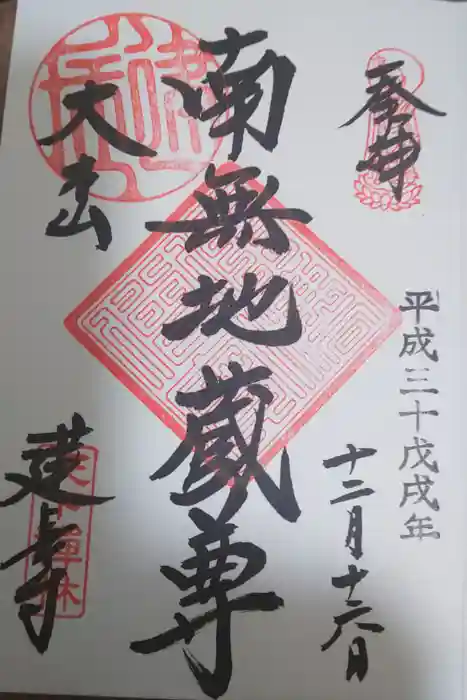 奉拝
平成三十戊戌年
十二月十六日
南無地蔵尊
大本山
建長寺
天下禅林